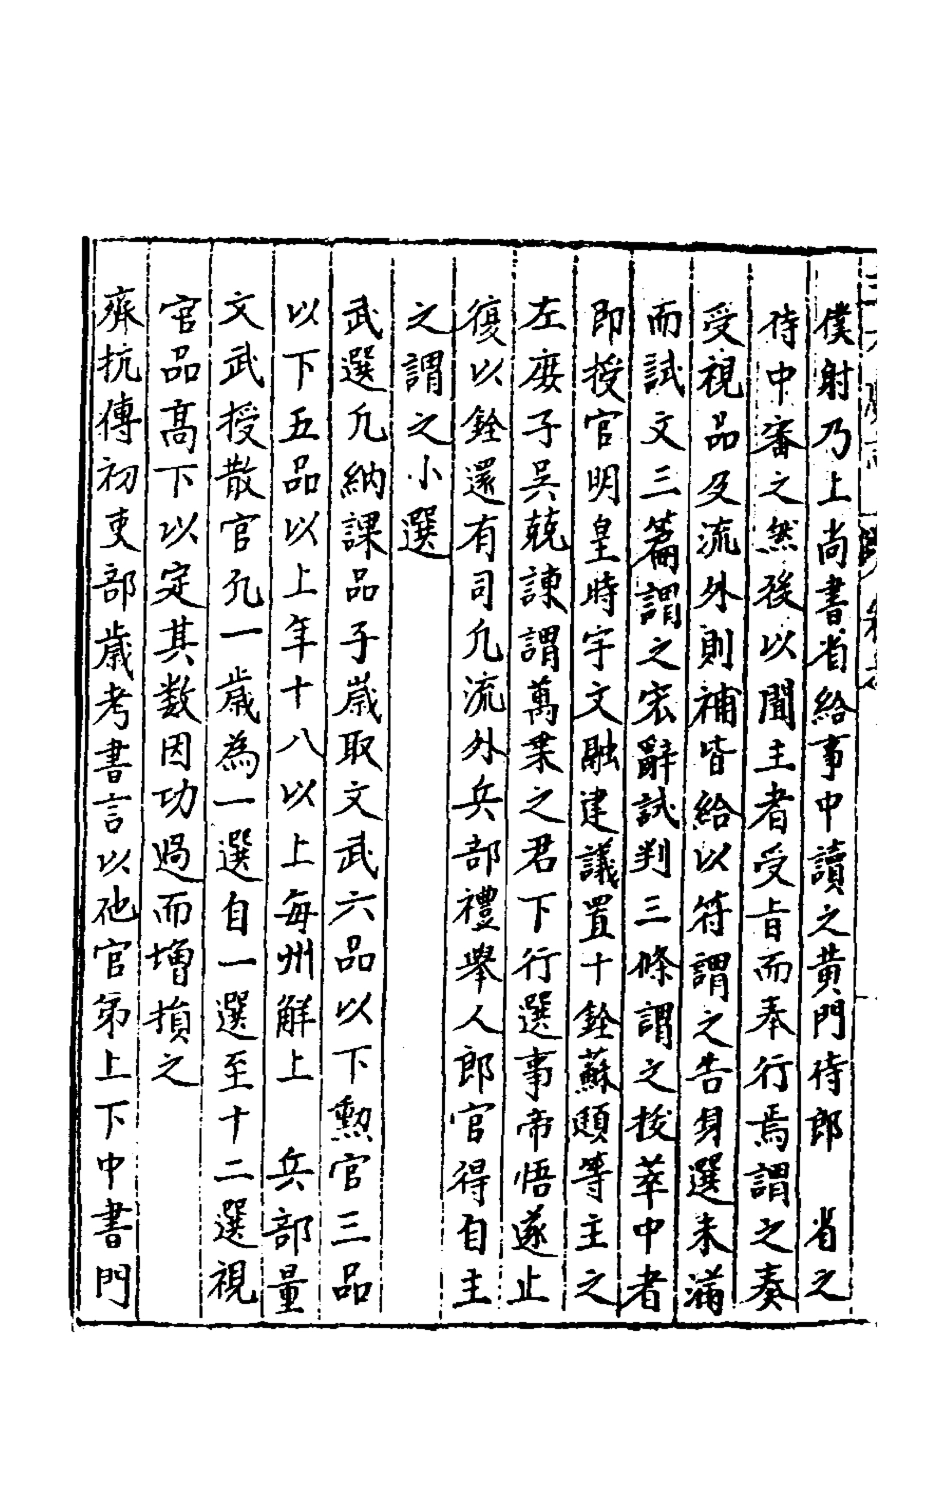 僕射乃上尚書省給事中讀之黄門侍郎　省之
侍中審之然後以聞主者受旨而奉行焉謂之奏
受視品及流外則補皆給以符謂之告身選未滿
而試文三篇謂之宏辭試判三條謂之拔萃中者
即授官明皇時宇文融建議置十銓蘇頲等主之
左庻子吳兢諫謂萬乗之君下行選事帝悟遂止
復以銓還有司凢流外兵部禮舉人郎官得自主
之謂之小選
武選凢納課品子歲取文武六品以下勲官三品
以下五品以上年十八以上每州解上　兵部量
文武授散官凢一歲為一選自一選至十二選視
官品髙下以定其数因功過而增損之
齊抗傳初吏部歲考書言以他官第上下中書門